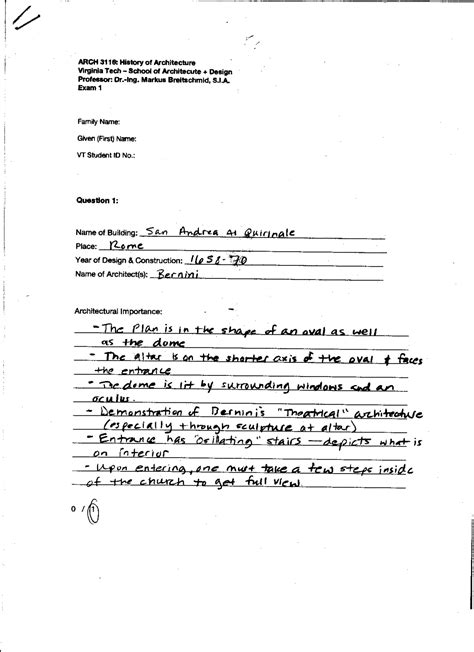 ARCH 3116: History of Architecture
Virginia Tech – School of Architecute + Design
Professor: Dr.-Ing. Markus Breitschmid, S.I.A.
Exam 1
Family Name:
Given (First) Name:
VT Student ID No.:
Question 1:
Name of Building: San Andrea At Quirinale
Place: Rome
Year of Design & Construction: 1658-'70
Name of Architect(s): Bernini
Architectural Importance:
- The Plan is in the shape of an oval as well
as the dome
- The altar is on the shorter axis of the oval & faces
the entrance
- The dome is lit by surrounding windows and an
oculus.
- Demonstration of Bernini's "Theatrical" architecture
(especially through sculpture at altar)
- Entrance has stairs — depicts what is
on Interior
- Upon entering, one must take a few steps inside
of the church to get full view.
0 / 1